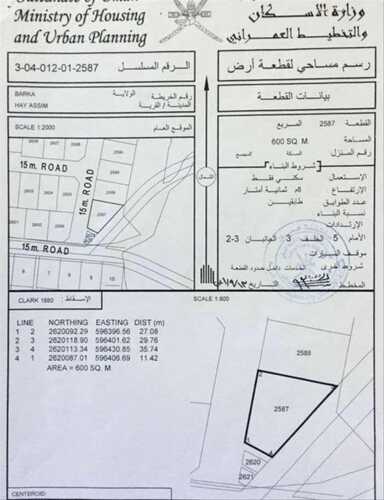 Sultanate of Oman
Ministry of Housing
and Urban Planning
وزارة الإسكان
والتخطيط العمراني
3-04-012-01-2587
الرقم المسلسل
رسم مساحي لقطعة أرض
BARKA
الولاية
HAY ASSIM
المدينة / القرية
رقم الخريطة
SCALE 1:2000
الموقع العام
بيانات القطعة
القطعة 2587 المربع
المساحة 600 SQ. M.
رقم المنزل السكة المجمع
شروط البناء
الاستعمال سكني فقط
الإرتفاع ثمانية أمتار
عدد الطوابق طابقين
نسبة البناء
الإرتدادات
الأمام 5 الخلف 3 الجانبان 3-2
موقف السيارات
شروط أخرى الخدمات داخل حدود القطعة
المخطط التاريخ
الشمال
15m. ROAD
15m. ROAD
15m. ROAD
2587
CLARK 1880
الإسقاط
SCALE 1:600
LINE NORTHING EASTING DIST (m)
1 2 2620092.29 596396.56 27.08
2 3 2620118.90 596401.62 29.76
3 4 2620113.34 596430.85 35.74
4 1 2620087.01 596406.69 11.42
AREA = 600 SQ. M.
2588
2587
2620
2621
CENTEROID